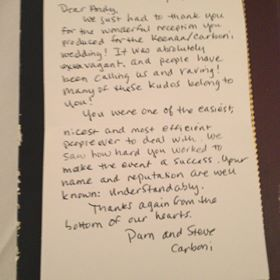 Dear Andy,
We just had to thank you
for the wonderful reception you
produced for the Keenan/Carboni
wedding! It was absolutely
extravagant, and people have
been calling us and raving!
Many of these kudos belong to
you!
You were one of the easiest,
nicest and most efficient
people ever to deal with. We
saw how hard you worked to
make the event a success. Your
name and reputation are well
known: Understandably.
Thanks again from the
bottom of our hearts.
Pam and Steve
Carboni